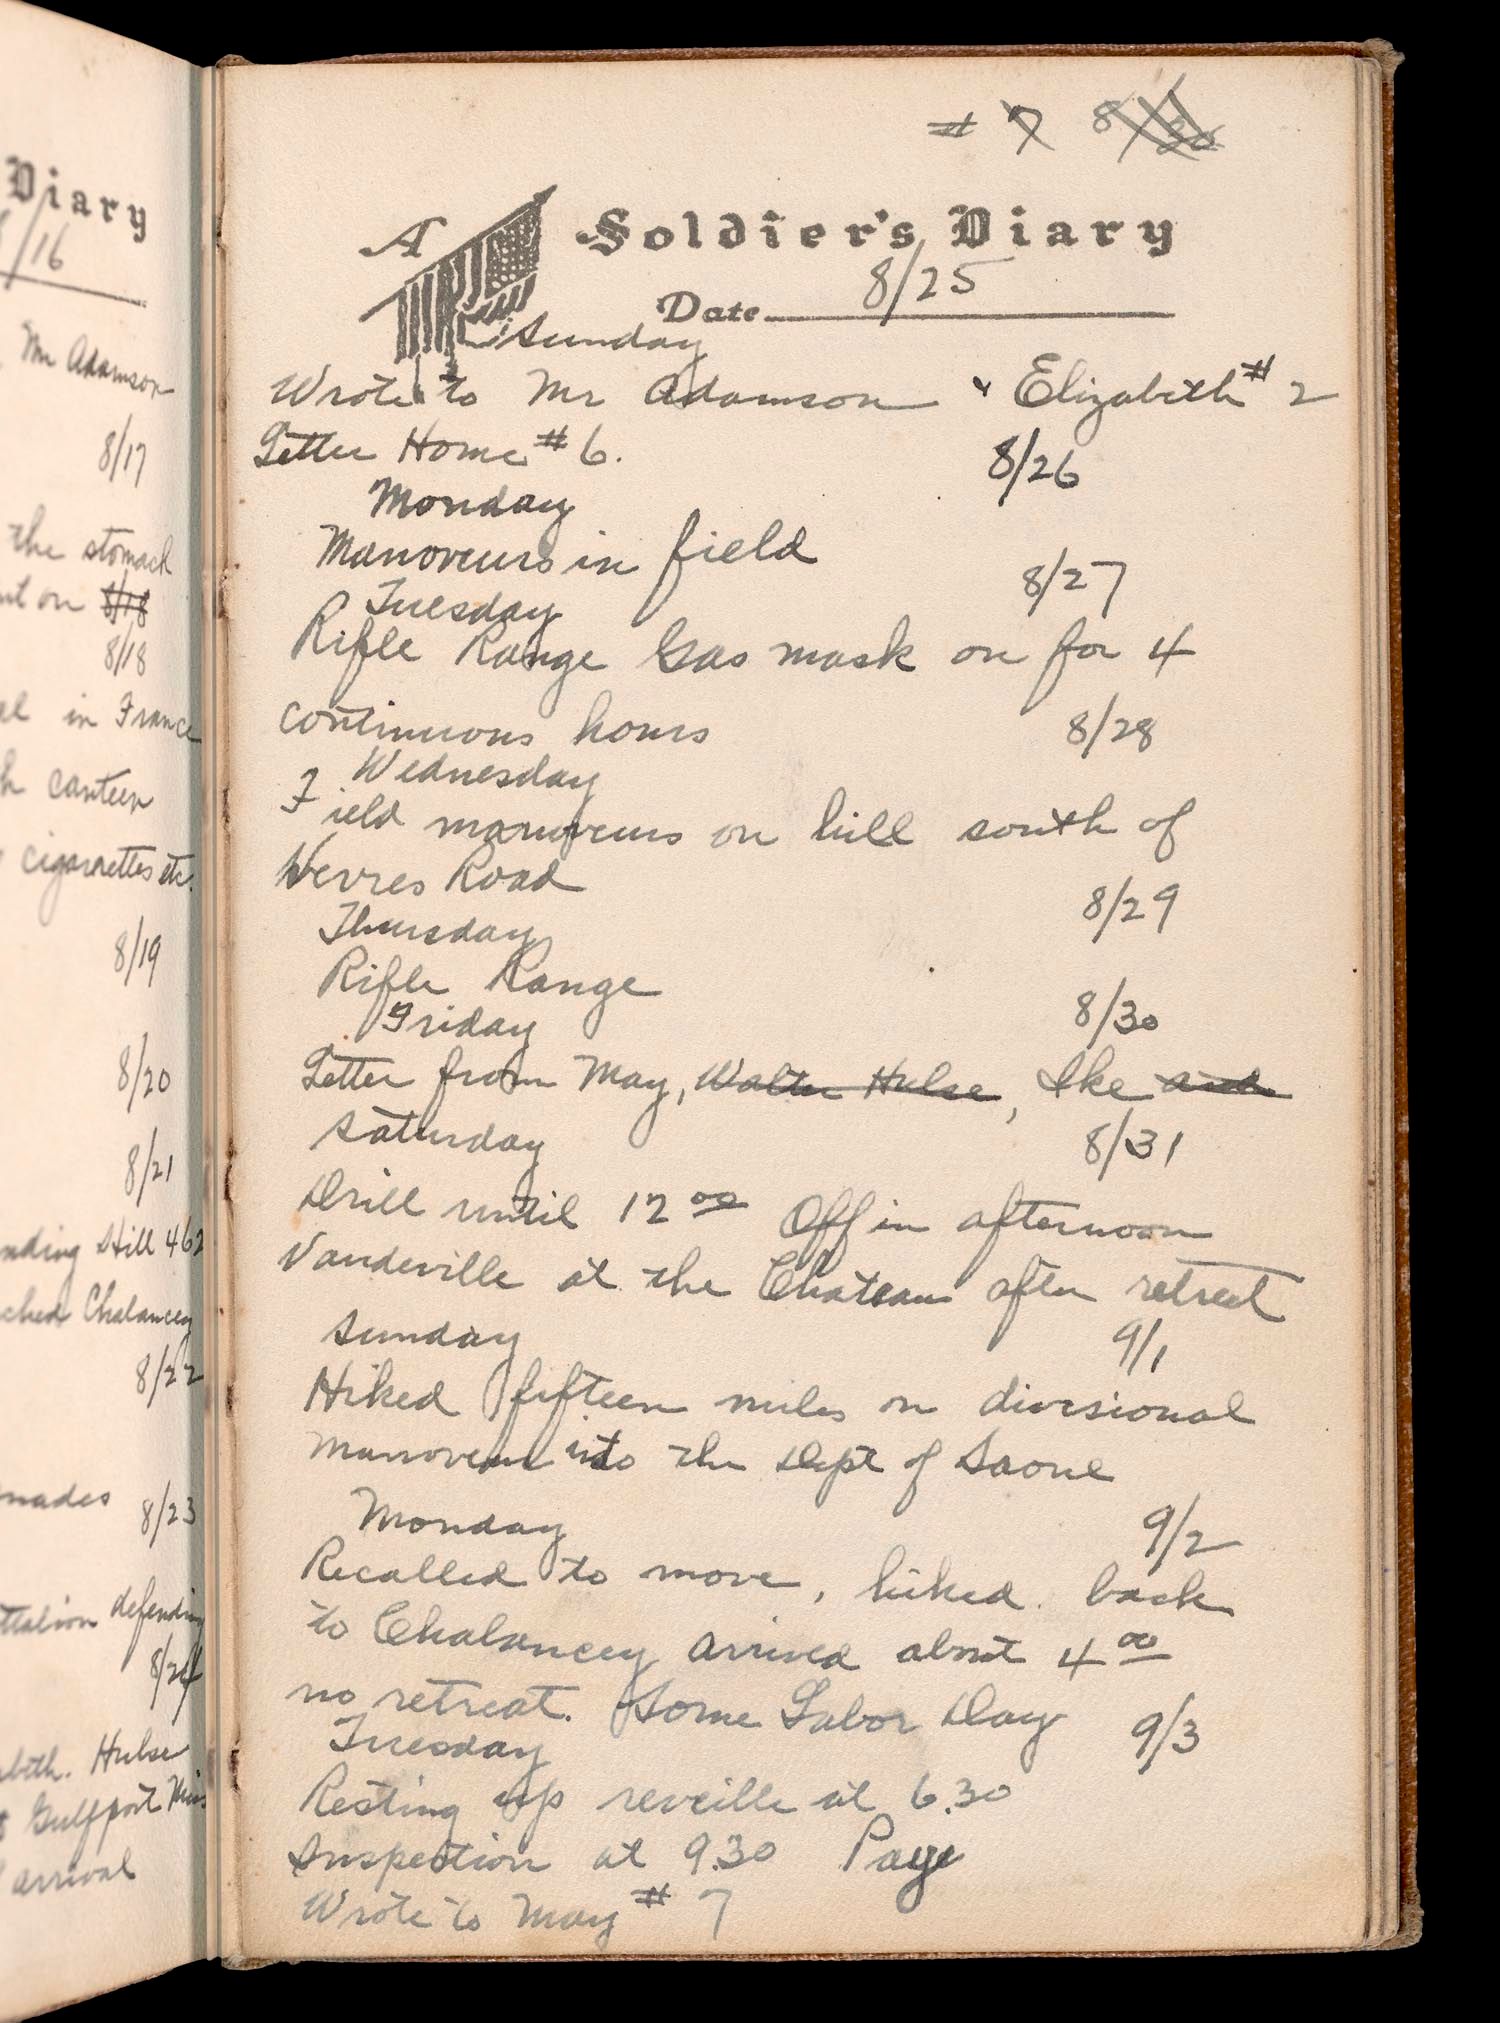 Diary
/16
Mr Adamson
8/17
the stomach
on 8/18
8/18
in France
canteen
cigarettes etc.
8/19
8/20
8/21
Hill 462
Chalancey
8/22
8/23
defending
8/24
Hulse
Gulfport Miss
arrival
# 7 8/30
A Soldier's Diary
Date 8/25
Sunday
Wrote to Mr Adamson & Elizabeth # 2
Letter Home # 6.
8/26
Monday
Manoveurs in field
8/27
Tuesday
Rifle Range Gas mask on for 4
continuous hours
8/28
Wednesday
Field manoveurs on hill south of
Vevres Road
8/29
Thursday
Rifle Range
8/30
Friday
Letter from May, Walter Hulse, Ike and
Saturday 8/31
Drill until 12 00 Off in afternoon
Vaudeville at the Chateau after retreat
Sunday 9/1
Hiked fifteen miles on divisional
manoveur into the Dept of Saone
Monday 9/2
Recalled to move, hiked back
to Chalancey arrived about 4 00
no retreat. Some Labor Day
Tuesday 9/3
Resting up reveille at 6.30
Inspection at 9.30 Page
Wrote to May # 7